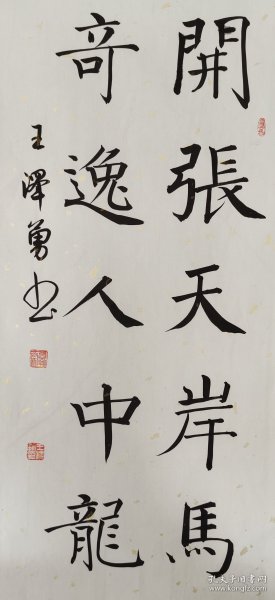 開張天岸馬
奇逸人中龍
王澤勇书
孔夫子旧书网